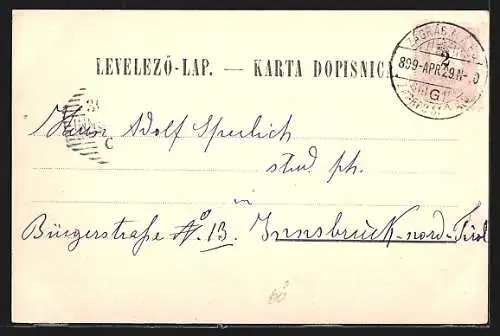 LEVELEZŐ-LAP. — KARTA DOPISNICA
ZÁGRÁB
2
899-APR.29.N-
G
Herrn Adolf Sperlich
stud. ph.
in
Bürgerstraße No. 13. Innsbruck-nord-Tirol
60